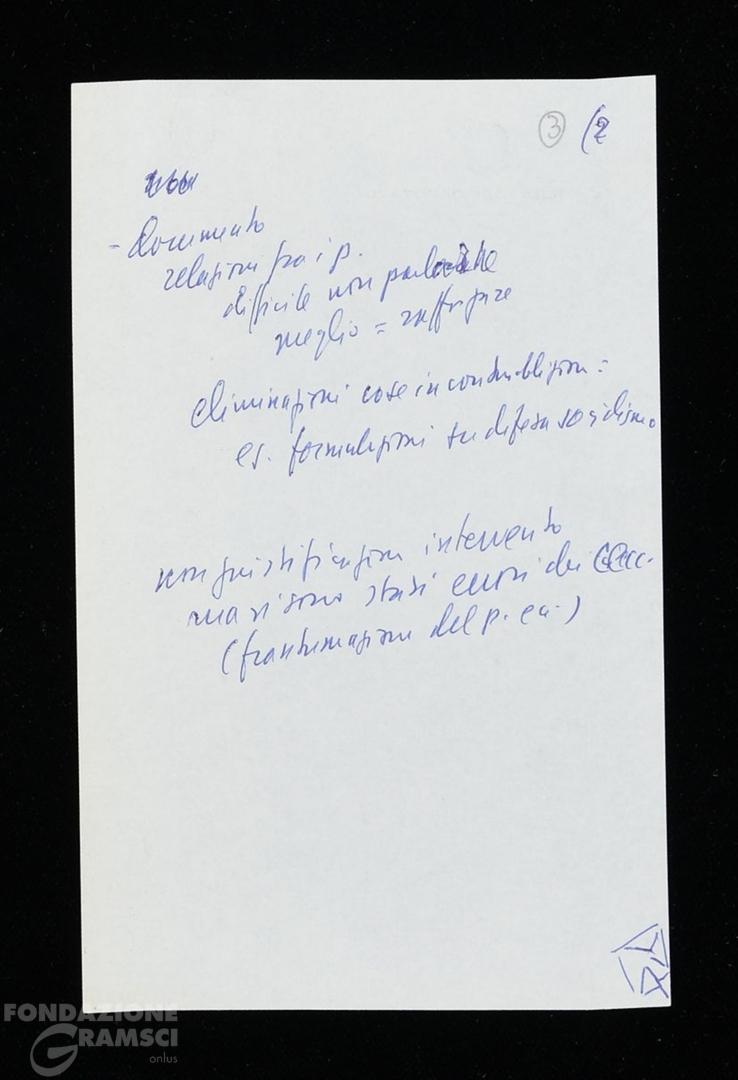 3 (2
- documento
relazioni fra i p.
difficile non parlare
meglio = rafforzare
eliminazioni cose in
es. formulazioni su difesa socialismo
non giustificazione intervento
ma vi sono stati errori dei
(frantumazione del p. ecc.)
FONDAZIONE
GRAMSCI
onlus